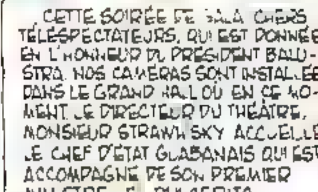 CETTE SOIRÉE DE GALA CHERS
TÉLESPECTATEURS, QUI EST DONNÉE
EN L'HONNEUR DU PRÉSIDENT BALU-
STRA. NOS CAMERAS SONT INSTALLÉES
DANS LE GRAND HALL OÙ EN CE MO-
MENT LE DIRECTEUR DU THÉATRE,
MONSIEUR STRAWINSKY ACCUEILLE
LE CHEF D'ÉTAT GLABANAIS QUI EST
ACCOMPAGNÉ DE SON PREMIER